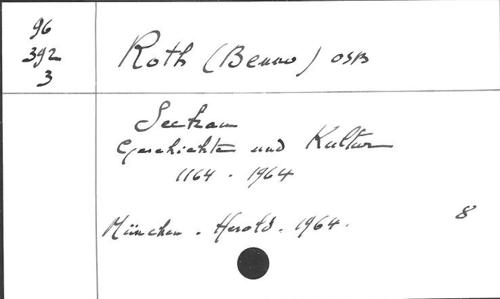 96
392
3
Roth (Benno) OSB
Seckau
Geschichte und Kultur
1164 - 1964
München. Herold. 1964.
8